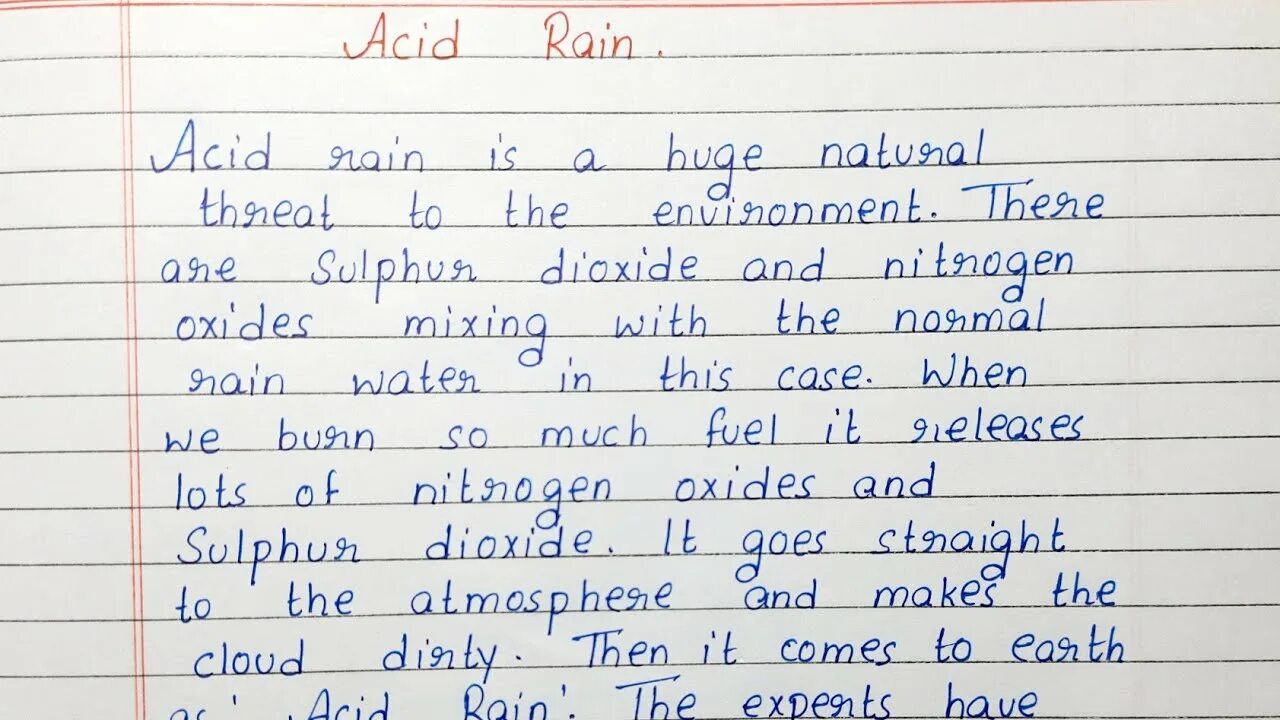 Acid Rain.
Acid rain is a huge natural
threat to the environment. There
are Sulphur dioxide and nitrogen
oxides mixing with the normal
rain water in this case. When
we burn so much fuel it releases
lots of nitrogen oxides and
Sulphur dioxide. It goes straight
to the atmosphere and makes the
cloud dirty. Then it comes to earth
as 'Acid Rain'. The experts have